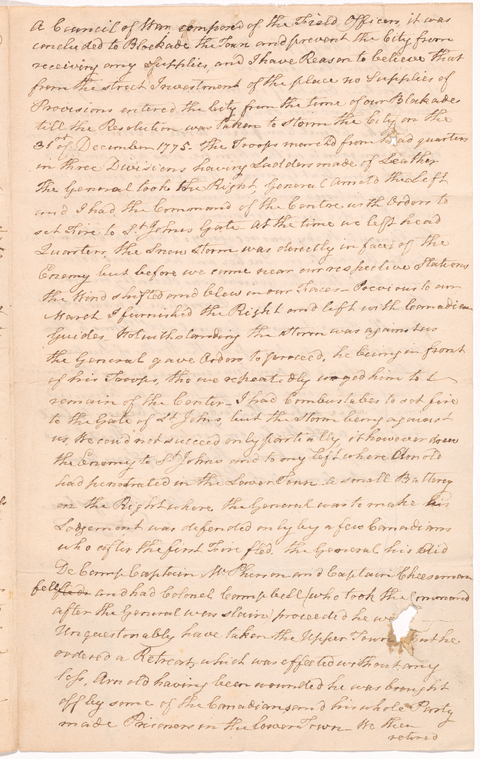 A Council of War composed of the Field Officers, it was
concluded to Blockade the Town and prevent the City from
receiving any Supplies, and I have Reason to believe that
from the strict Investment of the place no Supplies of
Provisions entered the City from the time of our Blockade
till the Resolution was taken to storm the City on the
31st of December 1775. The Troops march'd from Head quarters
in three Divisions having Ladders made of Leather
The General took the Right, General Arnold the Left
and I had the Command of the Centre with Orders to
set Fire to St Johns Gate. At the time we left head
Quarters the Snow Storm was directly in face of the
Enemy but before we came near our respective Stations
the Wind shifted and blew in our Faces. Previous to our
March I furnished the Right and left with Canadian
Guides. Notwithstanding the Storm was against us
the General gave Orders to proceed, he being in front
of his Troops, tho we repeatedly urged him to
remain of the Center. I had Combustables to set fire
to the Gate of St Johns, but the Storm being against
us, We coud not succeed only partially it however drew
the Enemy to St Johns and to my left where Arnold
had penetrated in the Lower Town. a small Battery
on the Right where the General was to make his
Lodgement was defended only by a few Canadians
who after the first Fire fled. the General his Aid
De Camp Captain McPherson and Captain Cheeseman
fell and had Colonel Campbell (who took the Command
after the General was slain) proceeded he
Unquestionably have taken the Upper Town but he
ordered a Retreat, which was effected without any
loss, Arnold having been wounded he was brought
off by some of the Canadians and his whole Party
made Prisoners in the lower Town. We then
retired